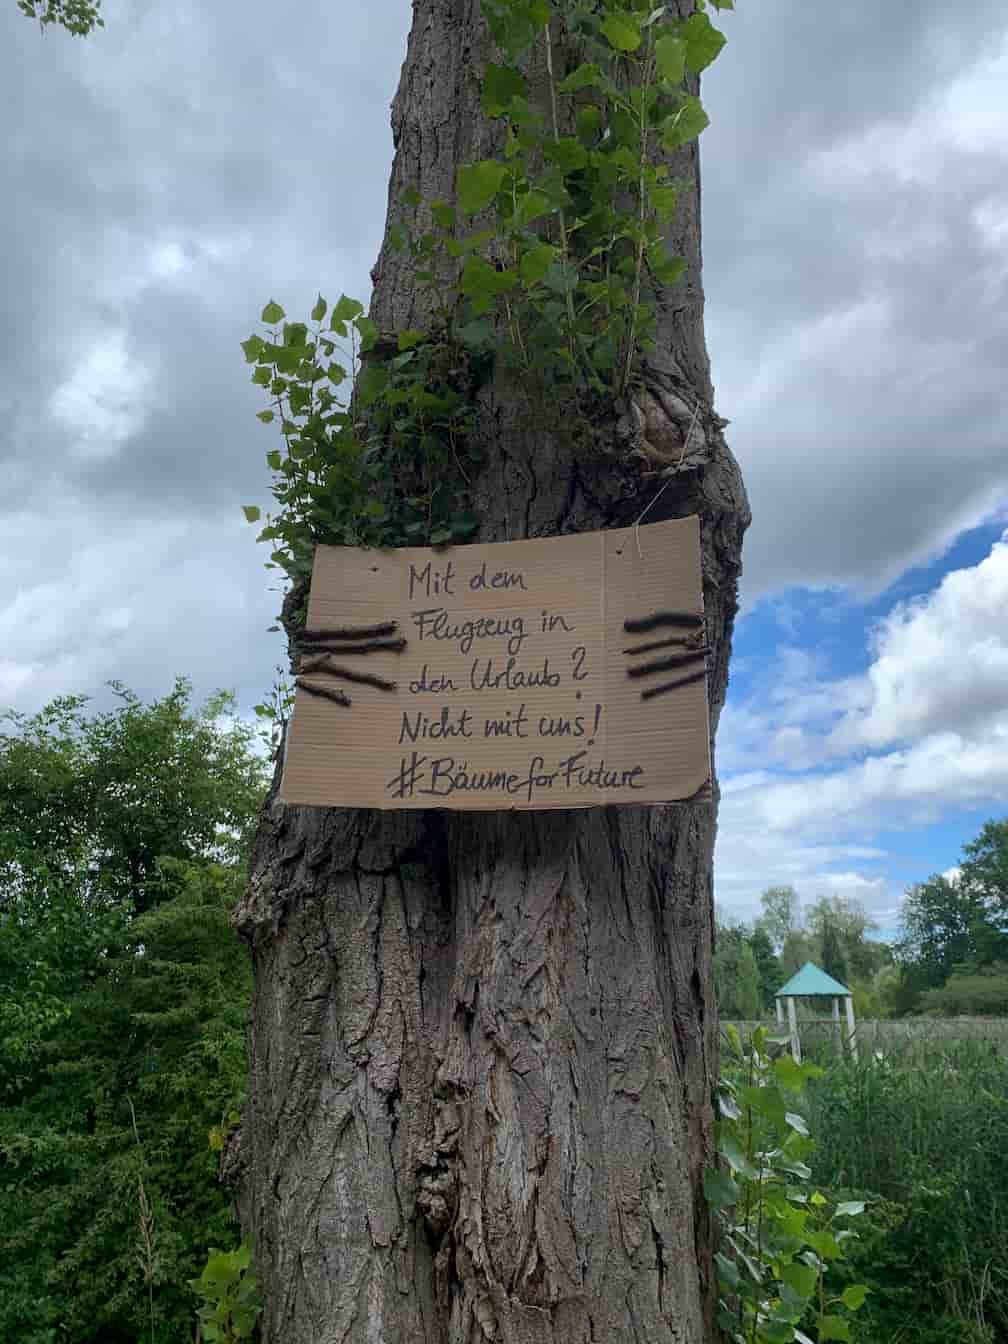 Mit dem
Flugzeug in
den Urlaub?
Nicht mit uns!
#BäumeforFuture